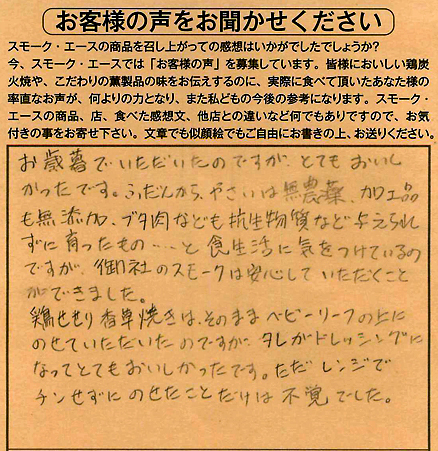 お客様の声をお聞かせください
スモーク・エースの商品を召し上がっての感想はいかがでしたでしょうか?
今、スモーク・エースでは「お客様の声」を募集しています。皆様においしい鶏炭
火焼や、こだわりの薫製品の味をお伝えするのに、実際に食べて頂いたあなた様の
率直なお声が、何よりの力となり、また私どもの今後の参考になります。スモーク・
エースの商品、店、食べた感想文、他店との違いなど何でもありですので、お気
付きの事をお寄せ下さい。文章でも似顔絵でもご自由にお書きの上、お送りください。
お歳暮でいただいたのですが、とてもおいし
かったです。ふだんから、やさいは無農薬、加工品
も無添加、ブタ肉なども抗生物質など与えられ
ずに育ったもの…と食生活に気をつけているの
ですが、御社のスモークは安心していただくこと
ができました。
鶏せせり香草焼きは、そのままベビーリーフの上に
のせていただいたのですが、タレがドレッシングに
なってとてもおいしかったです。ただレンジで
チンせずにのせたことだけは不覚でした。